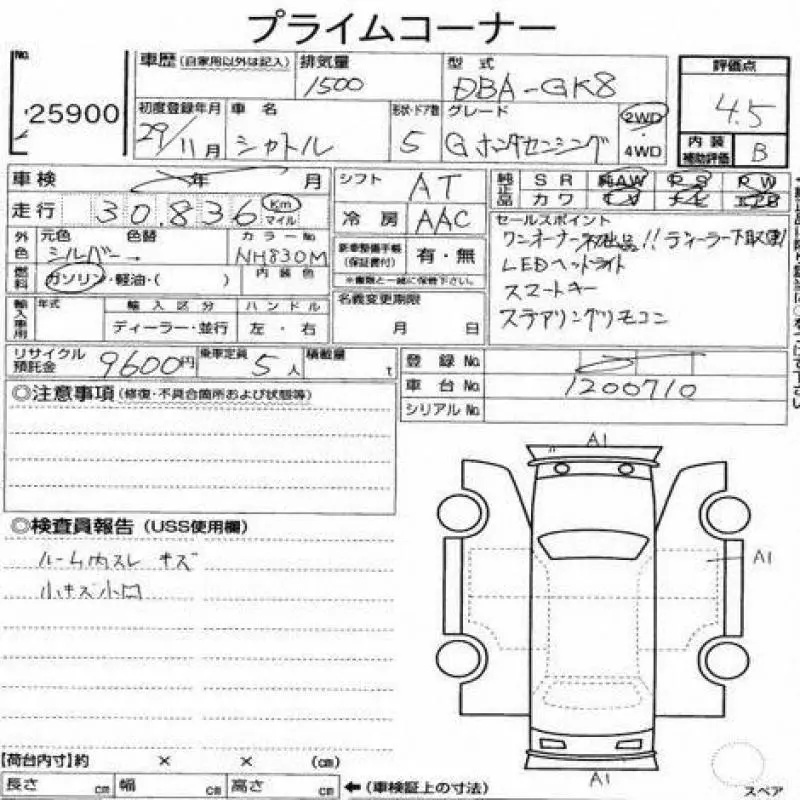 プライムコーナー
No.
25900
車歴 (自家用以外は記入)
排気量
1500
型式
DBA-GK8
評価点
4.5
内装
補助評価
B
初度登録年月
29/11月
車名
シャトル
形状・ドア数
5
グレード
Gホンダセンシング
2WD
・
4WD
車検
年 月
シフト
AT
純正品
SR 純AW PS PW
カワ TV
走行
30,836
Km
マイル
冷房
AAC
セールスポイント
ワンオーナー初出品!!ディーラー下取車!
LEDヘッドライト
スマートキー
ステアリングリモコン
外色
元色 色替
シルバー
カラーNo
NH830M
内装色
新車整備手帳
(保証書付)
有・無
※書類と一緒に保管下さい。
燃料
ガソリン・軽油・( )
名義変更期限
月 日
輸入車用
年式
輸入区分
ディーラー・並行
ハンドル
左・右
リサイクル
預託金
9600円
乗車定員
5人
積載量
t
登録No.
車台No.
1200710
シリアルNo.
◎注意事項 (修復・不具合箇所および状態等)
◎検査員報告 (USS使用欄)
ルーム内スレ キズ
小キズ小凹
A1
A1
A1
【荷台内寸】約 × × (cm)
長さ cm 幅 cm 高さ cm ←(車検証上の寸法)
スペア